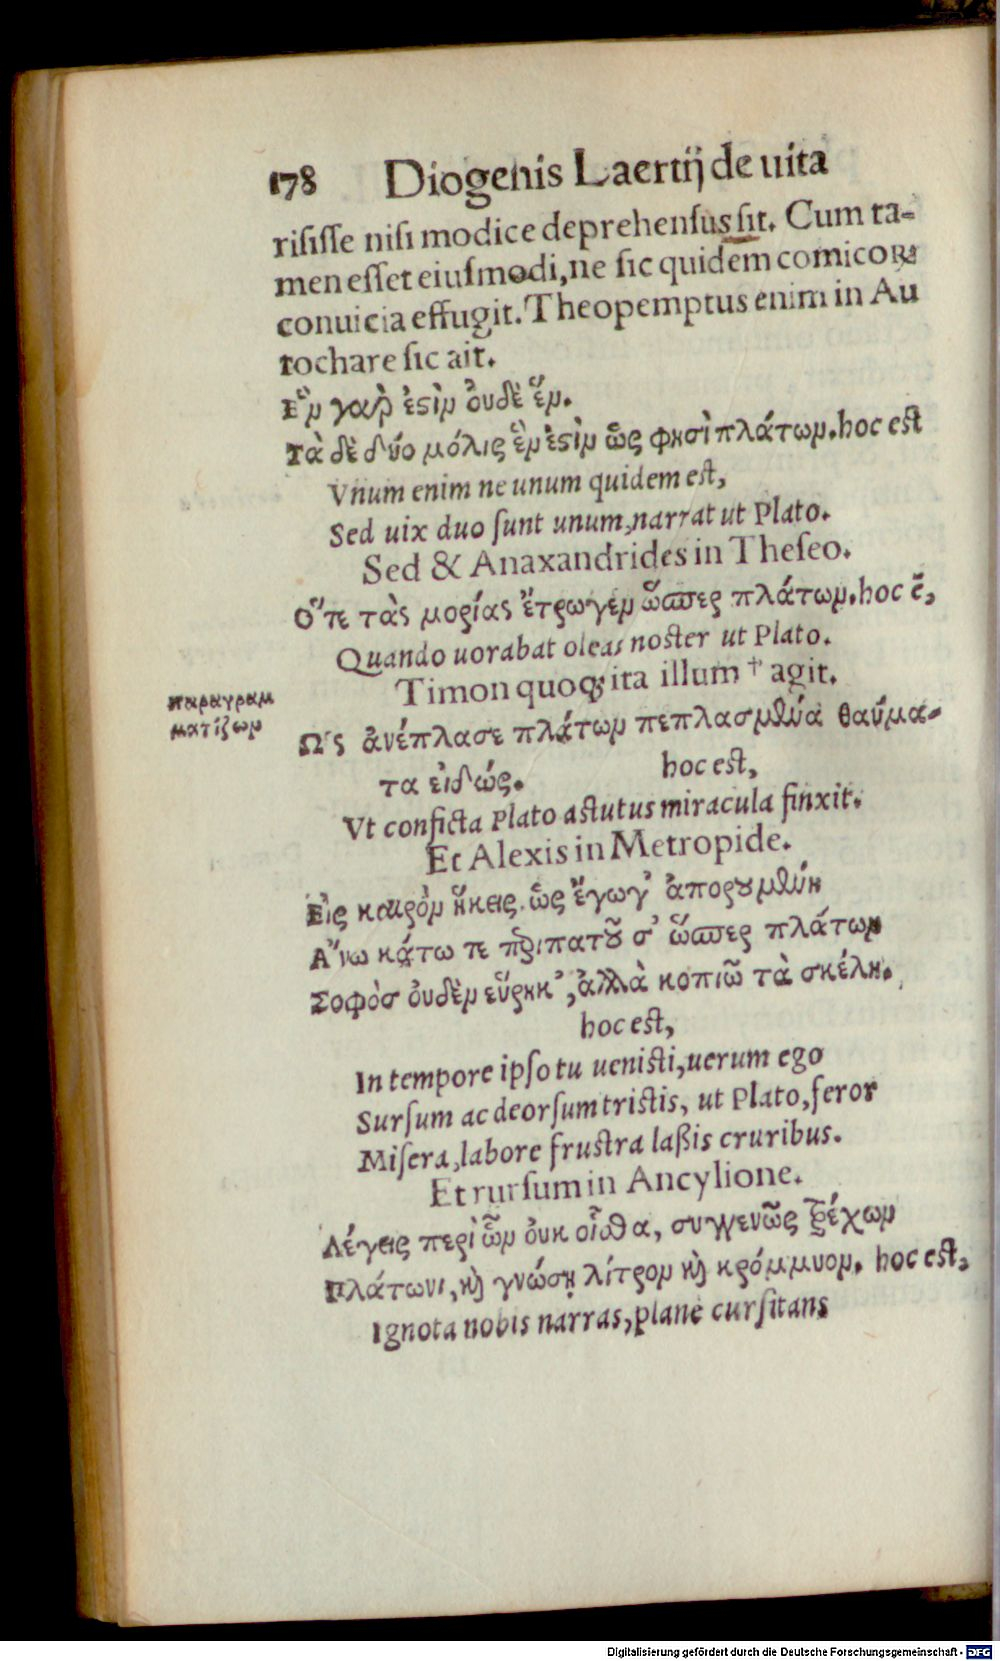 178 Diogenis Laertij de uita
risisse nisi modice deprehensus sit. Cum ta-
men esset eiusmodi, ne sic quidem comicoꝝ
conuicia effugit. Theopemptus enim in Au
tochare sic ait.
Ἓν γαρ̀ ἐςὶν ὀυδὲ ἕν.
Τὰ δὲ δύο μόλις ἓν ἐςὶν ὥς φησὶ πλάτων. hoc est
Vnum enim ne unum quidem est,
Sed uix duo sunt unum, narrat ut Plato.
Sed & Anaxandrides in Theseo.
Ὅτε τὰς μορίας ἔτρωγεν ὥσπερ πλάτων. hoc ē,
Quando uorabat oleas noster ut Plato.
Timon quoqꝫ ita illum † agit.
παραγραμ
ματίζων
Ως ἀνέπλασε πλάτων πεπλασμένα θαύμα-
τα εἰδώς. hoc est,
Vt conficta Plato astutus miracula finxit.
Et Alexis in Metropide.
Εἰς καιρὸν ἥκεις. ὥς ἔγωγ' ἀπορουμένη
Ἄνω κάτω τε περιπατοῦσ' ὥσπερ πλάτων
Σοφὸσ ὀυδὲν εὕρηκ', ἀλλὰ κοπιῶ τὰ σκέλη.
hoc est,
In tempore ipso tu uenisti, uerum ego
Sursum ac deorsum tristis, ut Plato, feror
Misera, labore frustra laßis cruribus.
Et rursum in Ancylione.
Λέγεις περὶ ὧν ὀυκ οἶσθα, συγγενῶς τρέχων
Πλάτωνι, κὴ γνώσῃ λίτρον κὴ κρόμμυον. hoc est,
Ignota nobis narras, plane cursitans
Digitalisierung gefördert durch die Deutsche Forschungsgemeinschaft - DFG